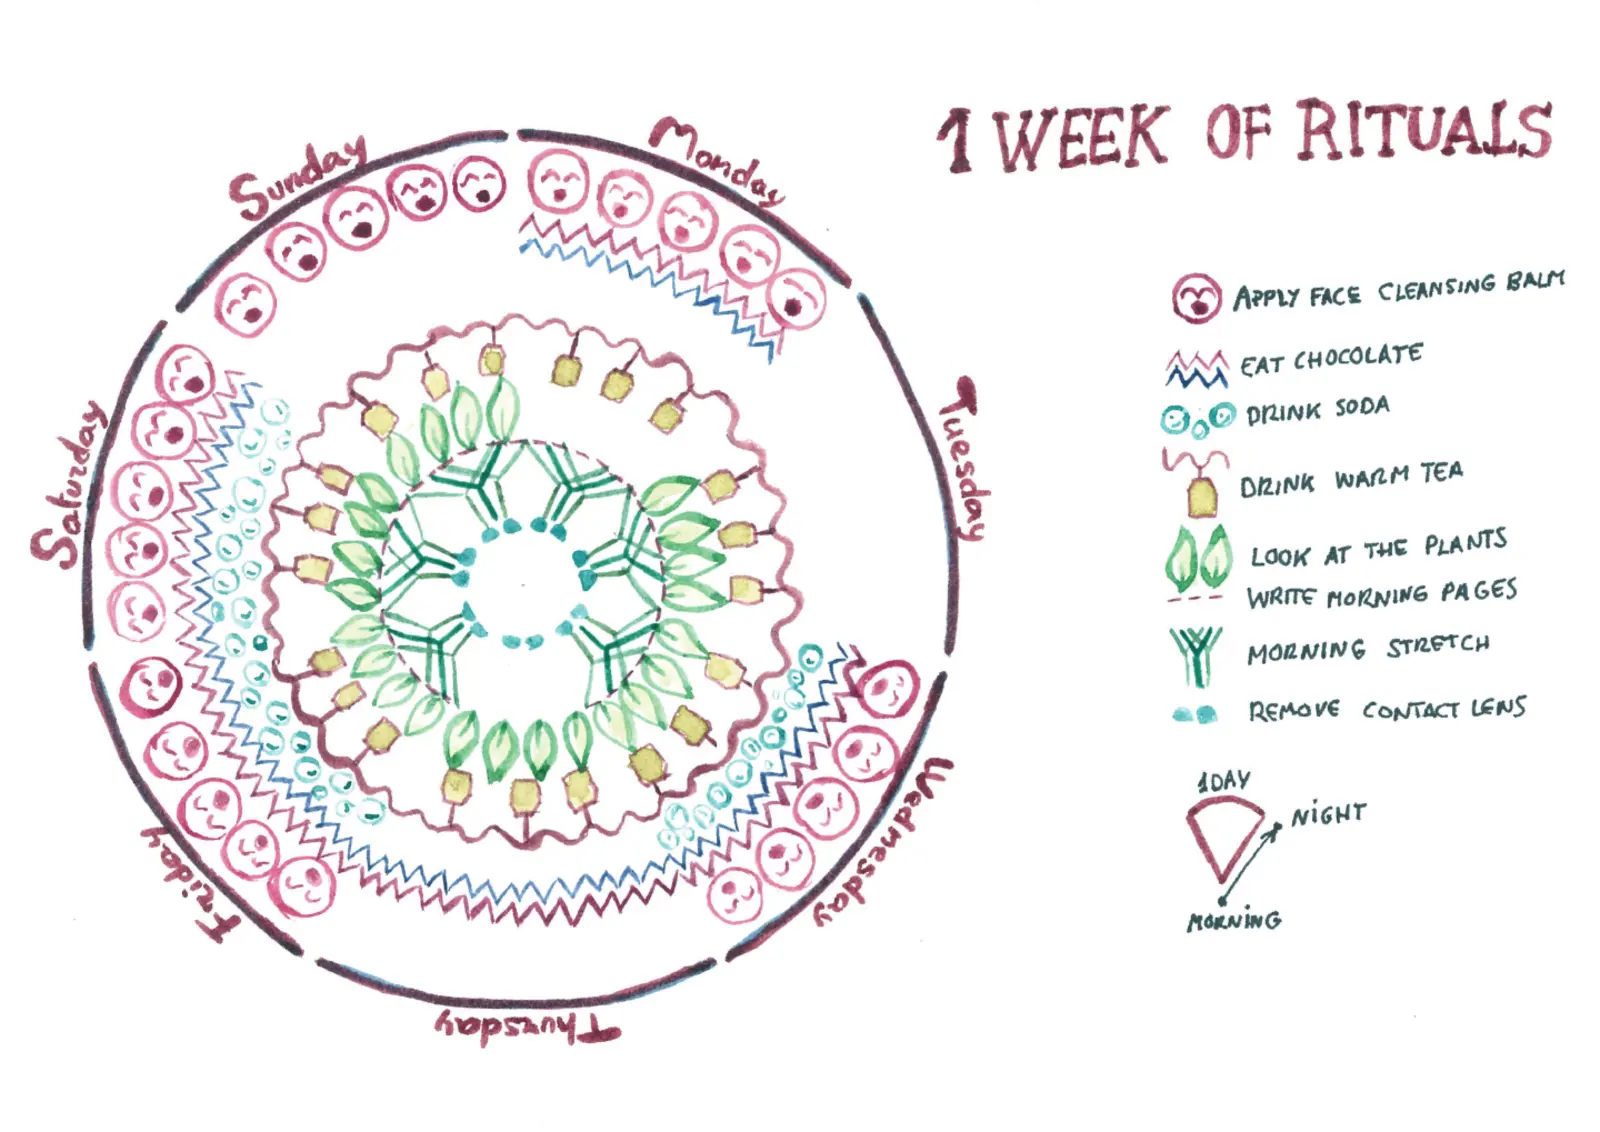 1 WEEK OF RITUALS
Monday
Tuesday
Wednesday
Thursday
Friday
Saturday
Sunday
APPLY FACE CLEANSING BALM
EAT CHOCOLATE
DRINK SODA
DRINK WARM TEA
LOOK AT THE PLANTS
WRITE MORNING PAGES
MORNING STRETCH
REMOVE CONTACT LENS
1DAY
NIGHT
MORNING